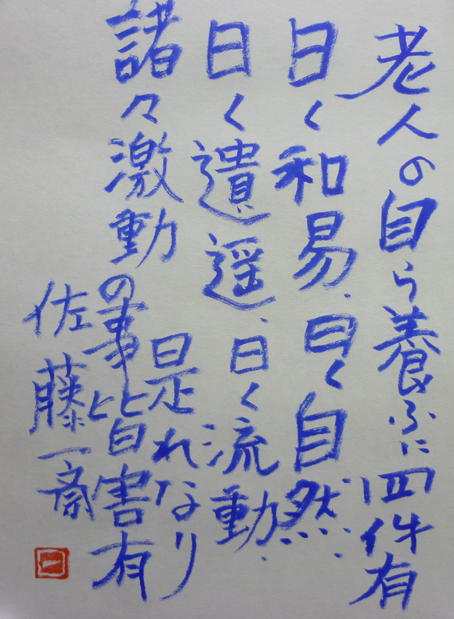 老人の自ら養ふに四件有
曰く和易、曰く自然、
曰く遺遥、曰く流動、
是れなり
諸々激動の事皆害有
佐藤一斎
一